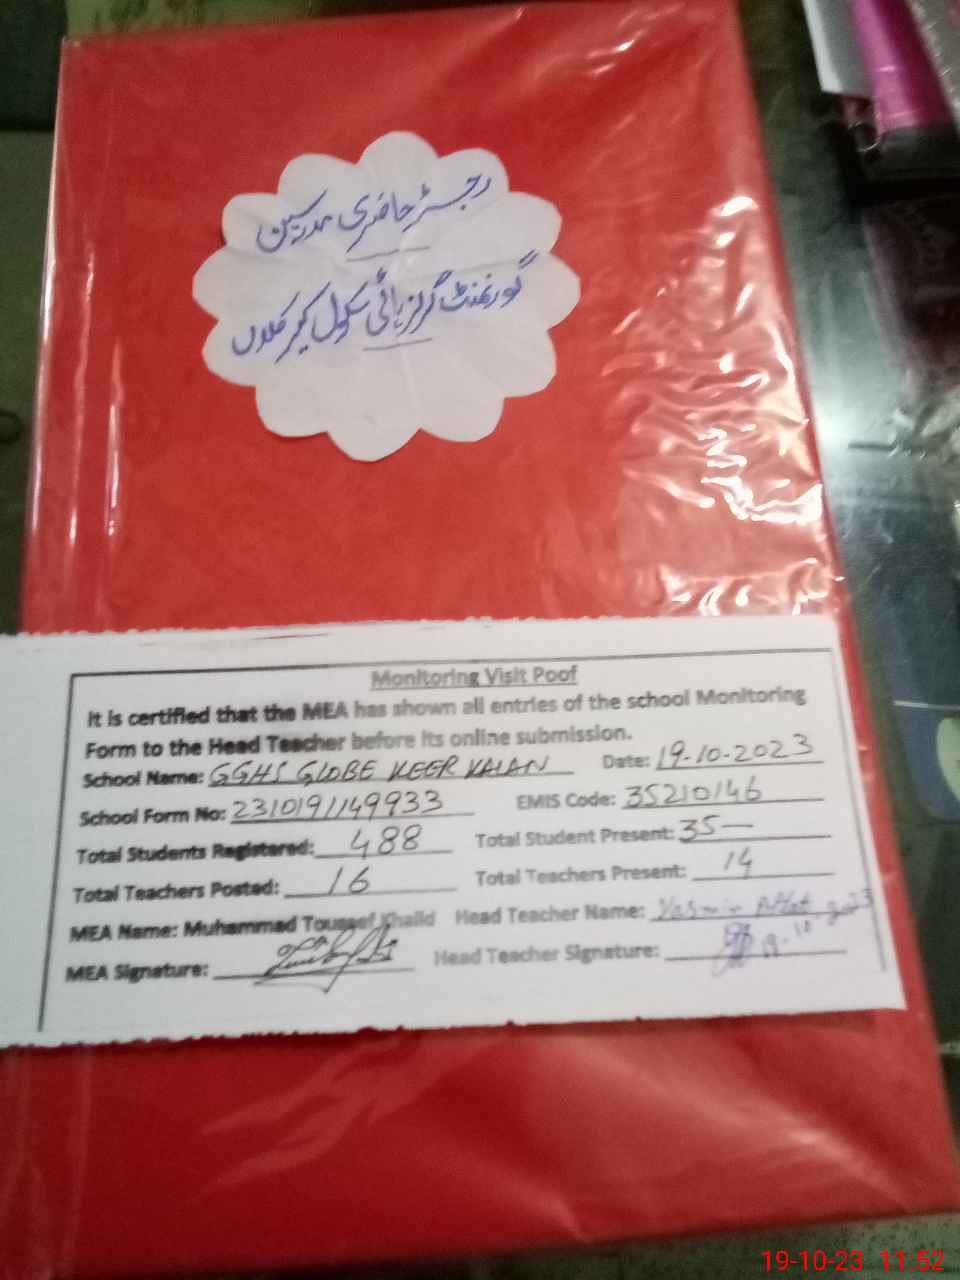 رجسٹر حاضری مدرسین
گورنمنٹ گرلز ہائی سکول کیر کلاں
Monitoring Visit Poof
It is certified that the MEA has shown all entries of the school Monitoring
Form to the Head Teacher before its online submission.
School Name: GGHS GLOBE KEER KALAN Date: 19-10-2023
School Form No: 2310191149933 EMIS Code: 35210146
Total Students Registered: 488 Total Student Present: 35—
Total Teachers Posted: 16 Total Teachers Present: 14
MEA Name: Muhammad Touseef Khalid Head Teacher Name: Yasmin
MEA Signature: Head Teacher Signature: 19-10 2023
19-10-23 11:52